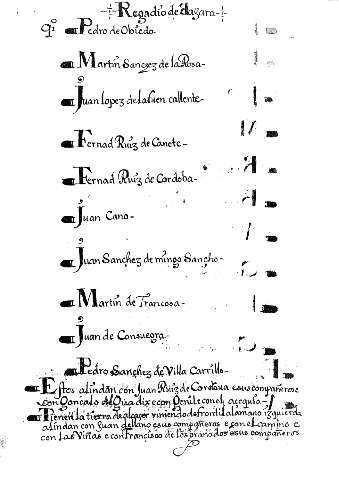 Regadio de Hazara
Pedro de Obiedo.
Martin Sanchez de la Rosa
Juan lopez de la fuen caliente
Fernad Ruiz de Canete
Fernad Ruiz de Cordoba
Juan Cano
Juan Sanchez de mingo Sancho
Martin de Trancosa
Juan de Consuegra
Pedro Sanchez de Villa Carrillo
Estos alindan con Juan Ruiz de Cordova e sus compañeros
con Goncalo de Guadix e con
Tienen la tierra de viniendo de a la mano izquierda
alindan con Juan de llano e sus compañeros e con el camino e
con las Viñas e con Francisco de los granados e sus compañeros